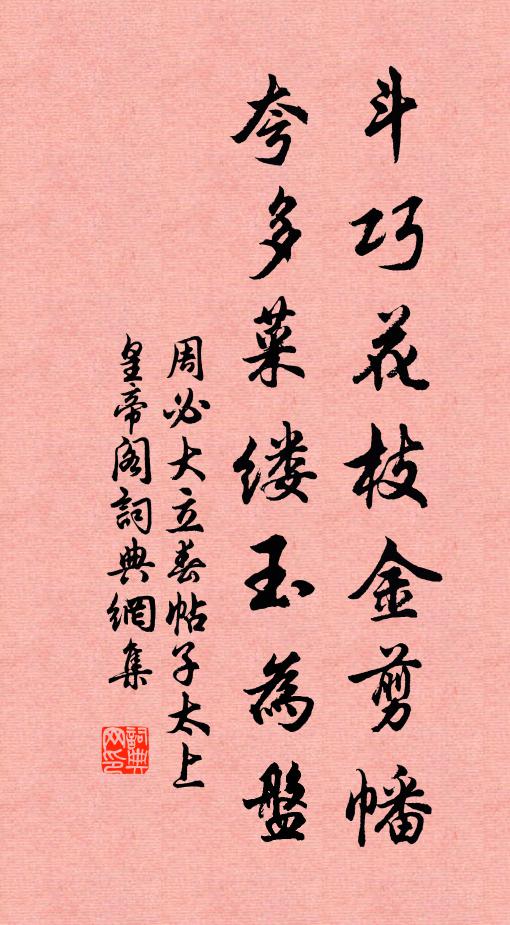 斗巧花枝金剪幡
夸多菜缕玉為盤
周必大立春帖子太上
皇帝阁詞典網集
詞典网印